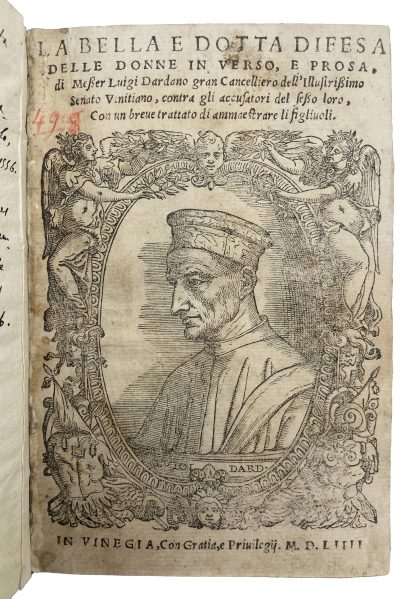 LA BELLA E DOTTA DIFESA
DELLE DONNE IN VERSO, E PROSA,
di Meßer Luigi Dardano gran Cancelliero dell'Illustrißimo
Senato Vinitiano, contra gli accusatori del seßo loro,
Con un breve trattato di ammaestrare li figliuoli.
498
DARD·
IN VINEGIA, Con Gratia, e Privilegij. M. D. LIIII